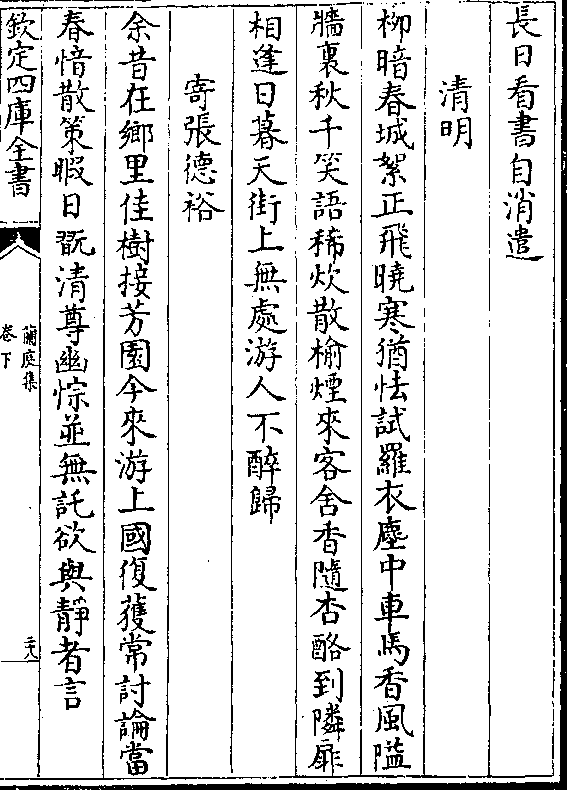 長日看書自消遣
清明
柳暗春城絮正飛曉寒猶怯試羅衣塵中車馬香風隘
牆裏秋千笑語稀炊散榆煙來客舍香隨杏酪到隣扉
相逢日暮天街上無處游人不醉歸
寄張德裕
余昔在鄉里佳樹接芳園今來游上國復獲常討論當
春愔散策暇日翫清尊幽悰並無託欲與靜者言
欽定四庫全書
蘭庭集
卷下
三八